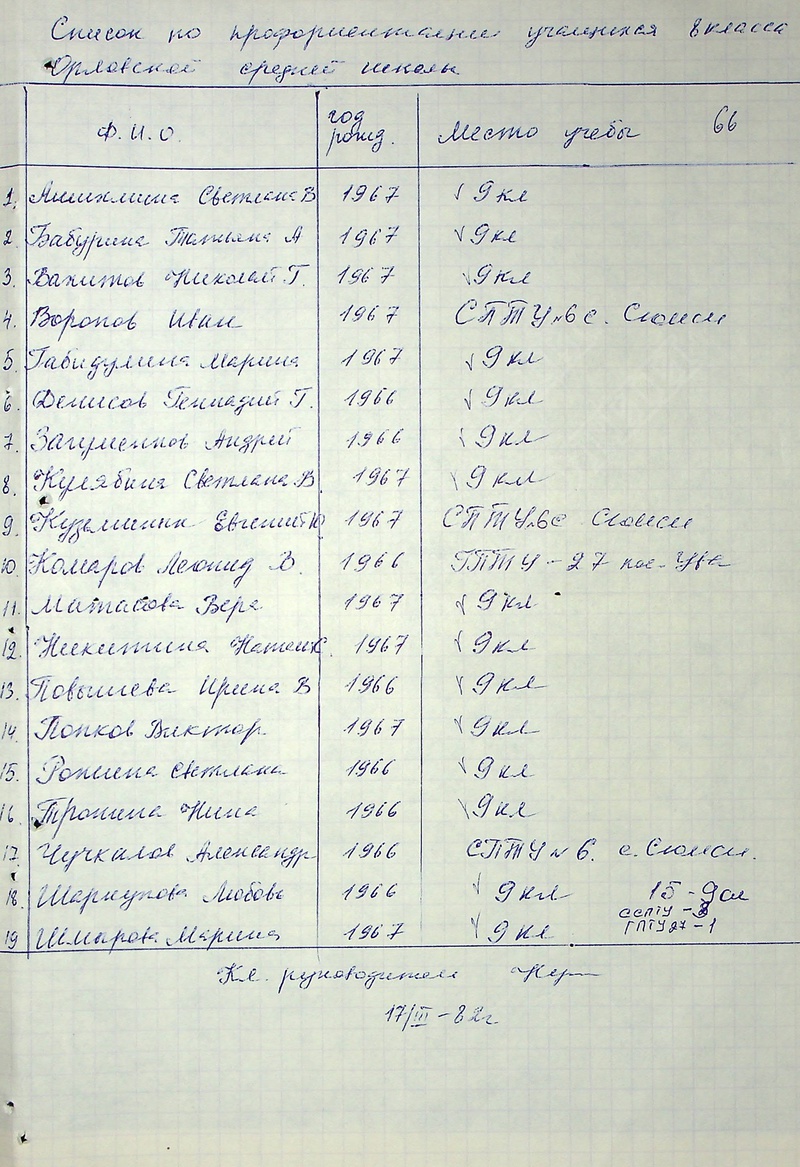 Список по профориентации учащихся 8 класса
Орловской средней школы
Ф.И.О. год рожд. Место учебы 66
1. Анихлина Светлана В 1967 √ 9 кл
2. Бабурина Татьяна А 1967 √ 9 кл
3. Вахитов Николай Г. 1967 √ 9 кл
4. Воронов Иван 1967 СПТУ №6 с. Сюмси
5. Габидулина Марина 1967 √ 9 кл
6. Денисов Геннадий Г. 1966 √ 9 кл
7. Загуменнов Андрей 1966 √ 9 кл
8. Кулябина Светлана В 1967 √ 9 кл
9. Куземкин Евгений Ю 1967 СПТУ №6 с Сюмси
10. Комаров Леонид В. 1966 ГПТУ - 27 пос. Ува
11. Матасова Вера 1967 √ 9 кл
12. Никитина 1967 √ 9 кл
13. Повышева Ирина В 1966 √ 9 кл
14. Попков Виктор 1967 √ 9 кл
15. Рожина Светлана 1966 √ 9 кл
16. Тронина Нина 1966 √ 9 кл
17. Чучкалов Александр 1966 СПТУ №6. с. Сюмси.
18. Шаркунова Любовь 1966 √ 9 кл 15 - 9 кл
ССПТУ - 3
19 Шмарова Марина 1967 √ 9 кл ГПТУ 27 - 1
Кл. руководитель
17/III - 82г